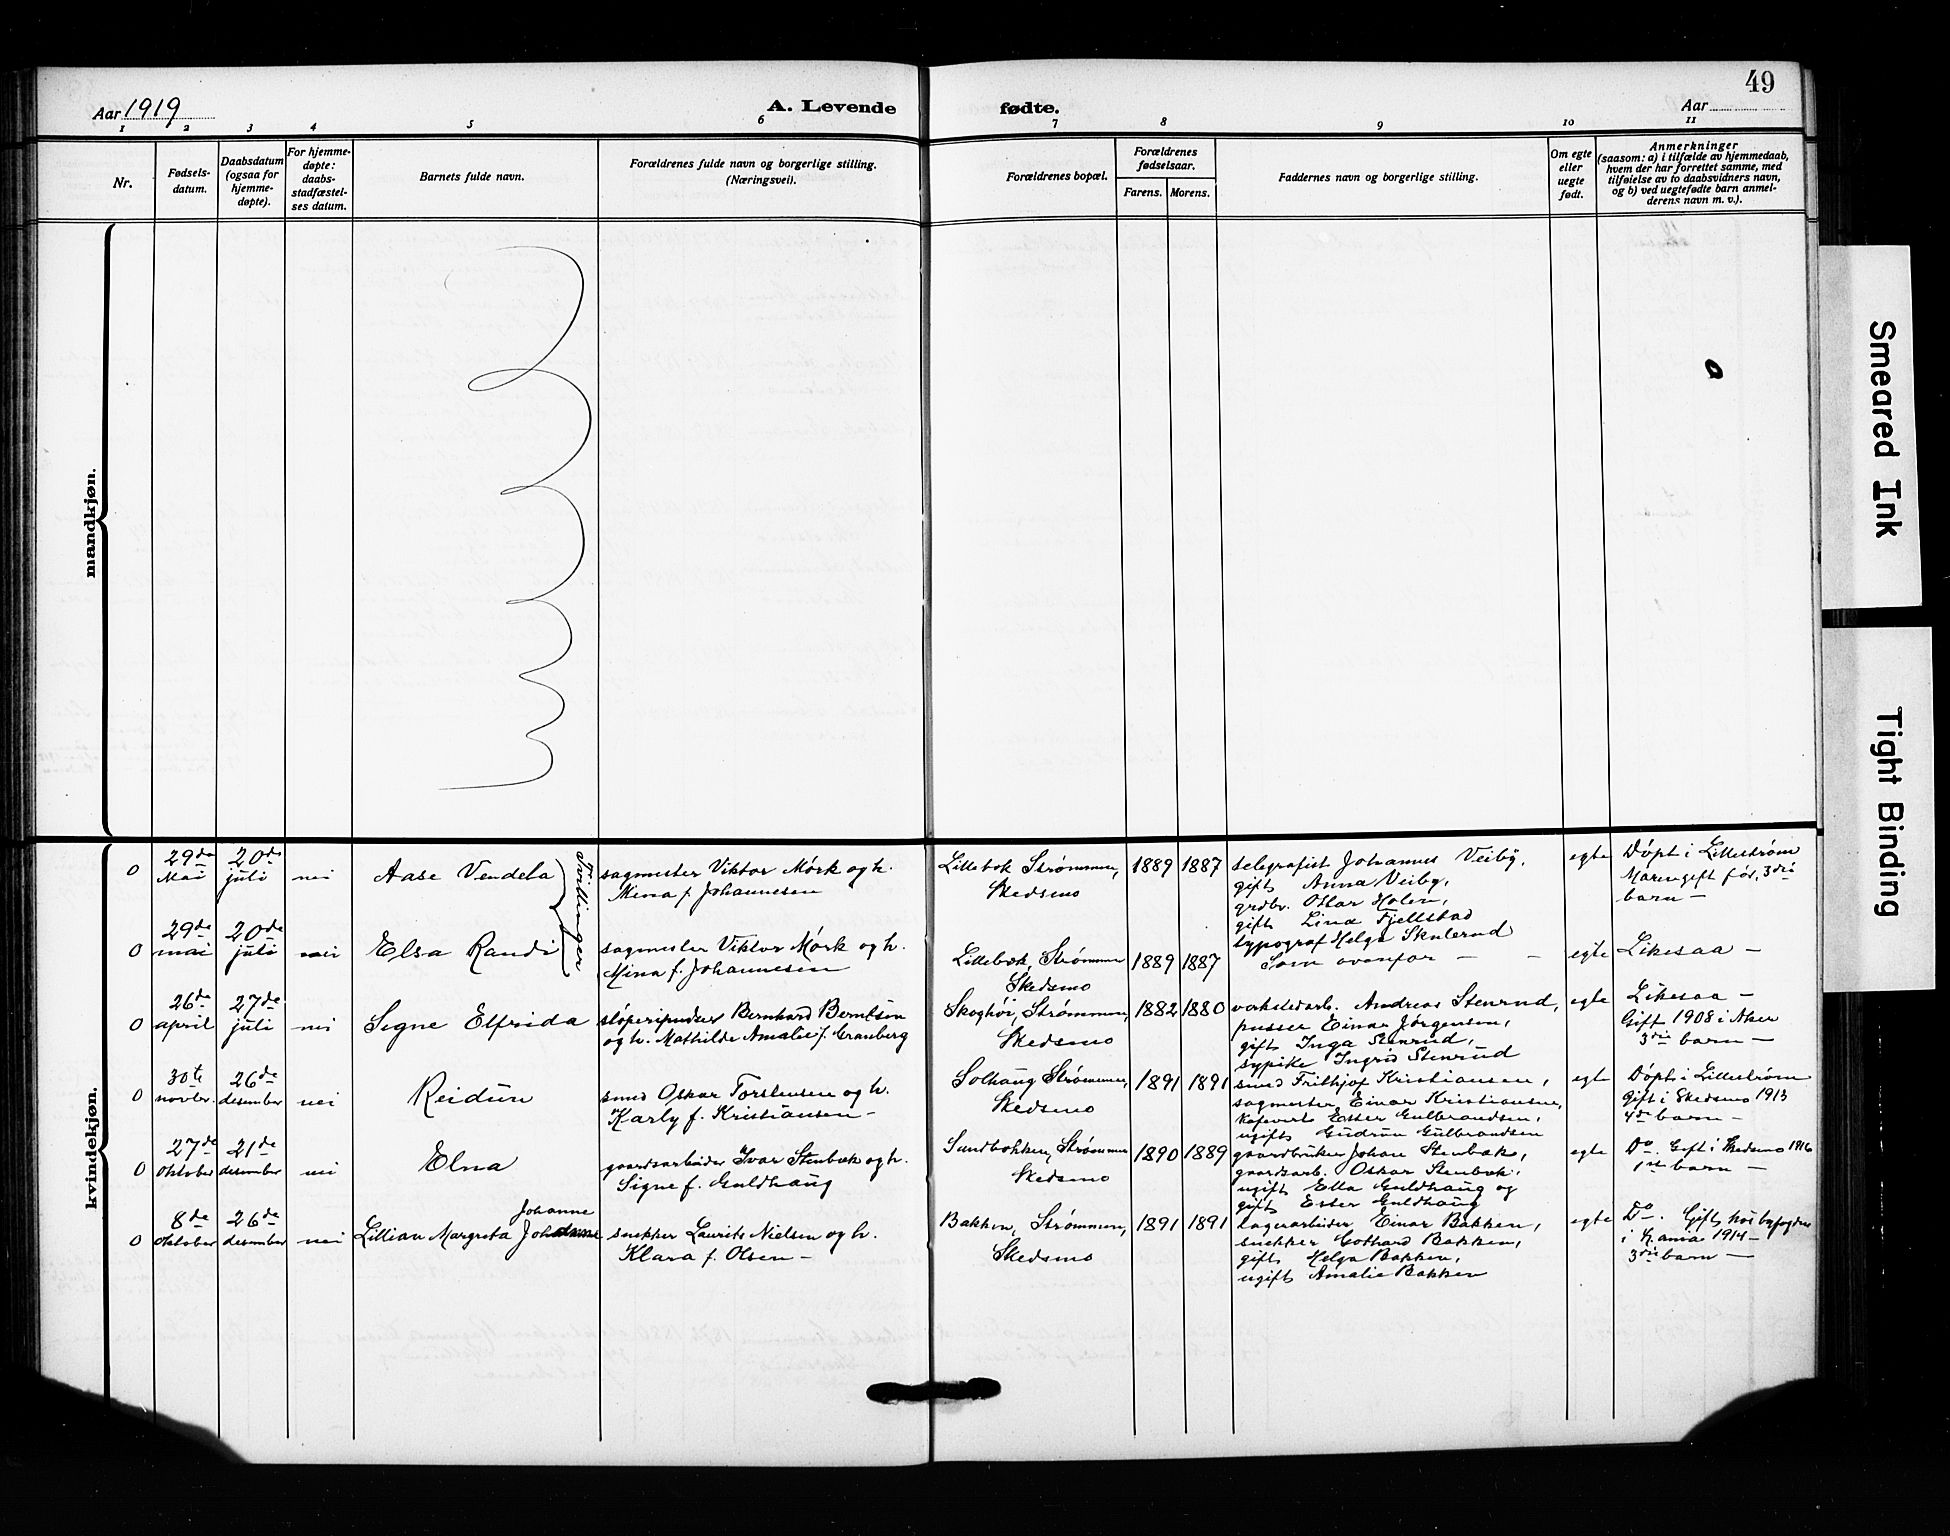 49
Aar 1919
A. Levende
fødte.
Aar
1 2 3 4 5 6 7 8 9 10 11
Nr.
Fødsels-
datum.
Daabsdatum
(ogsaa for
hjemme-
døpte).
For hjemme-
døpte:
daabs-
stadfæstel-
ses datum.
Barnets fulde navn.
Forældrenes fulde navn og borgerlige stilling.
(Næringsvei).
Forældrenes bopæl.
Forældrenes
fødselsaar.
Farens. Morens.
Faddernes navn og borgerlige stilling.
Om egte
eller
uegte
født.
Anmerkninger
(saasom: a) i tilfælde av hjemmedaab,
hvem der har forrettet samme, med
tilføielse av to daabsvidners navn,
og b) ved uegtefødte barn anmel-
derens navn m. v.).
mandkjøn.
kvindekjøn.
0
29de
Mai
20de
juli
nei
Aase Vendela
Tvillinger
sagmester Viktor Mörk og h.
Mina f. Johannesen
Lillebæk Strømmen,
Skedsmo
1889 1887
telegrafist Johannes Veiby,
gift Anna Veiby,
grdbr. Ottar Holen,
gift Lina Fjellstad
typograf Helge Skulerud
egte
Döpt i Lilleström
barn –
0
29de
mai
20de
juli
nei
Elsa Randi
sagmester Viktor Mörk og h.
Mina f. Johannesen
Lillebæk, Strømmen
Skedsmo
1889 1887
Som ovenfor – –
egte
Likesaa –
0
26de
april
27de
juli
nei
Signe Elfrida
støperipudser Bernhard Berntsen
og h. Mathilde Amalie f. Granberg
Skoghöi, Strømmen,
Skedsmo
1882 1880
verkstedarb. Andreas Stenrud,
pusser Einar Jörgensen,
gift Inga Stenrud,
sypike Ingrid Stenrud
egte
Likesaa –
Gift 1908 i Aker
3die barn –
0
30te
novbr.
26de
desember
nei
Reidun
smed Oskar Torstensen og h.
Karly f. Kristiansen –
Solhaug Strømmen,
Skedsmo
1891 1891
smed Frithjof Kristiansen,
sagmester Einar Kristiansen,
Ester Gulbrandsen,
ugift Gudrun Gulbrandsen
egte
Döpt i Lilleström
Gift i Skedsmo 1913
4de barn –
0
27de
oktober
21de
desember
nei
Elna
gaardsarbeider Ivar Stenbæk og h.
Signe f. Guldhaug
Sundbakken, Strømmen
Skedsmo
1890 1889
gaardbruker Johan Stenbæk,
gaardsarb. Oskar Stenbæk,
ugift Ella Guldhaug og
gift Ester Guldhaug
egte
Do. Gift i Skedsmo 1916
1ste barn –
0
8de
oktober
26de
desember
nei
Johanne
Lillian Margreta
snekker Laurits Nielsen og h.
Klara f. Olsen –
Bakken, Strømmen,
Skedsmo
1891 1891
lagerarbeider Einar Bakken,
snekker Gothard Bakken,
gift Helga Bakken,
ugift Amalie Bakken
egte
Do. Gift hos byfogden
i Kr.ania 1914 –
3die barn –
Smeared Ink
Tight Binding